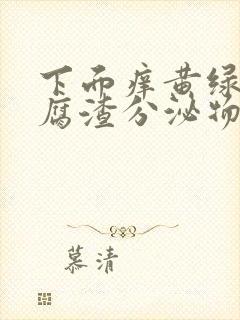 下而痒黄绿
腐渣分泌物
慕清